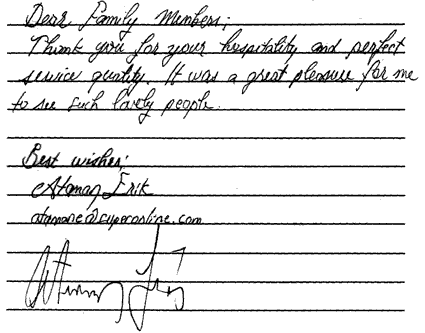 Dear Family Members;
Thank you for your hospitality and perfect
service quality. It was a great pleasure for me
to see such lovely people.
Best wishes;
Ataman Erik